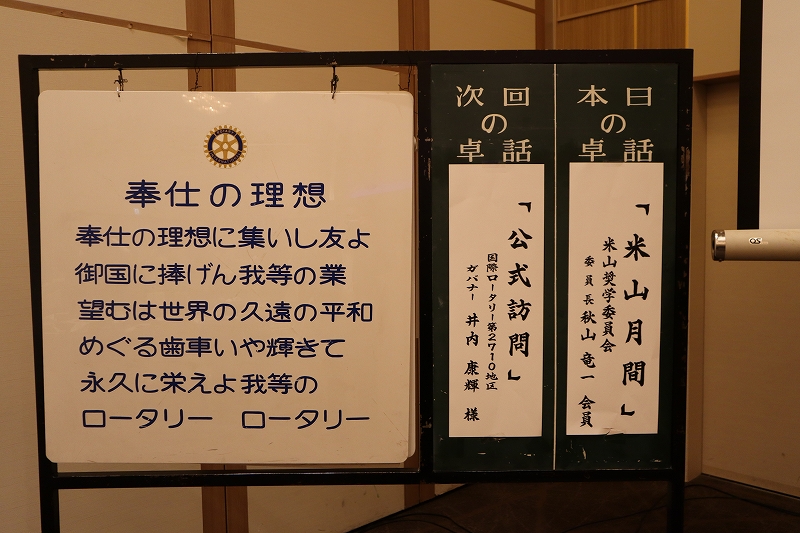 奉仕の理想
奉仕の理想に集いし友よ
御国に捧げん我等の業
望むは世界の久遠の平和
めぐる歯車いや輝きて
永久に栄えよ我等の
ロータリー　ロータリー
本日
の
卓話
「米山月間」
米山奨学委員会
委員長 秋山 竜一 会員
次回
の
卓話
「公式訪問」
国際ロータリー第2710地区
ガバナー 井内 康輝 様
OS